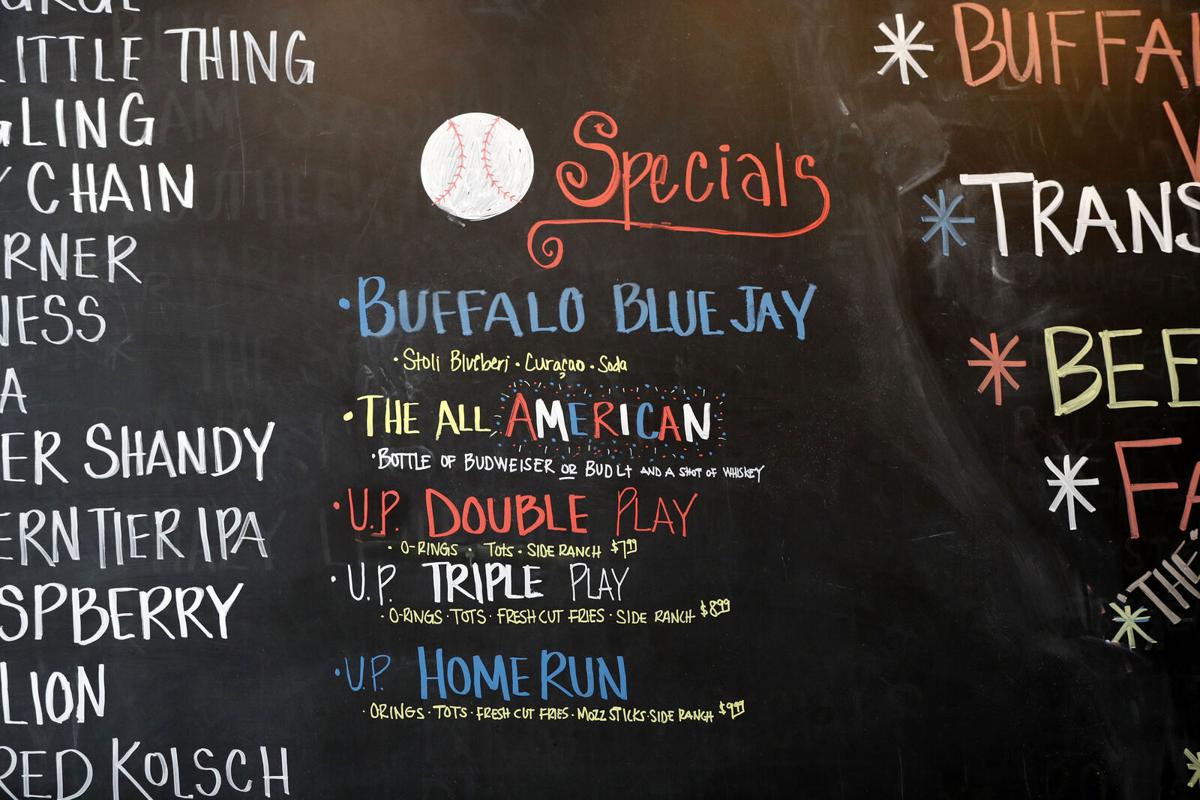 LITTLE THING
GLING
CHAIN
RNER
NESS
A
ER SHANDY
ERN TIER IPA
SPBERRY
LION
RED KOLSCH
Specials
• BUFFALO BLUE JAY
• Stoli Blueberi • Curaçao • Soda
• THE ALL AMERICAN
• BOTTLE OF BUDWEISER OR BUD Lt AND A SHOT OF WHISKEY
• U.P. DOUBLE PLAY
• O-RINGS • TOTS • SIDE RANCH $7.99
• U.P. TRIPLE PLAY
• O-RINGS • TOTS • FRESH CUT FRIES • SIDE RANCH $8.99
• U.P. HOME RUN
• ORINGS • TOTS • FRESH CUT FRIES • MOZZ STICKS • SIDE RANCH $9.99
* BUFFA
* TRANS
* BEE
* FA
* "THE